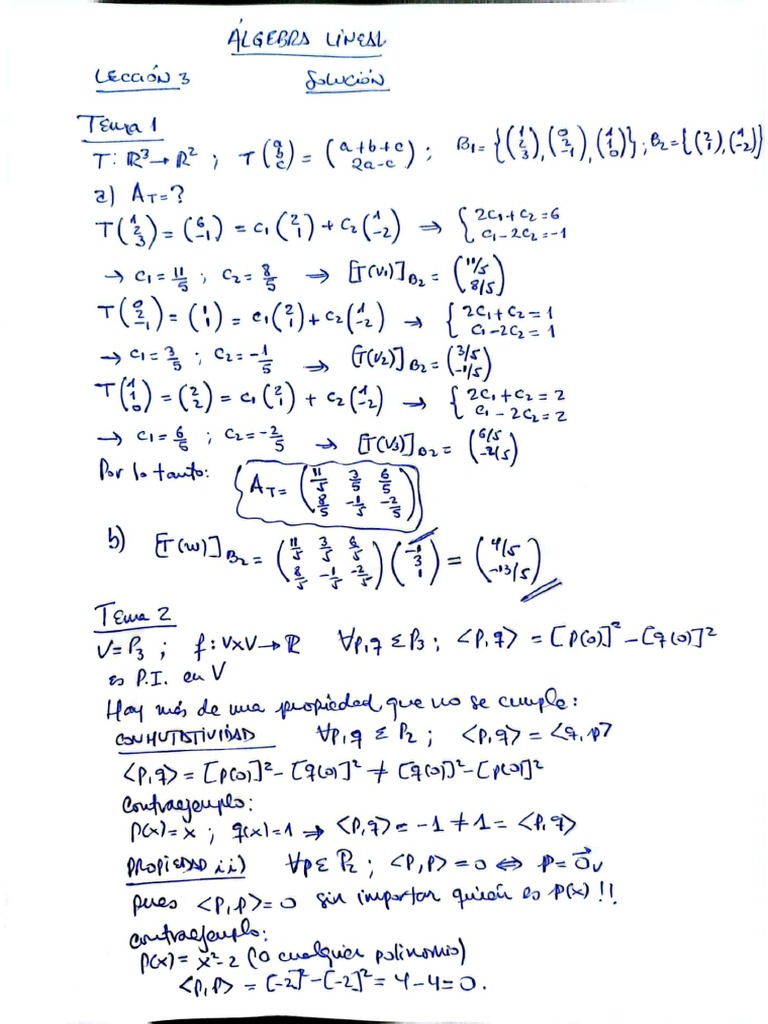 ÁLGEBRA LINEAL
LECCIÓN 3 SOLUCIÓN
Tema 1
T: ℝ³→ℝ² ; T(a b c) = (a+b+c 2a-c) ; B₁= {(1 2 3), (0 2 -1), (1 1 0)}; B₂={(2 1), (1 -2)}
a) A_T=?
T(1 2 3) = (6 -1) = c₁(2 1) + c₂(1 -2) ⇒ { 2c₁+c₂=6 c₁-2c₂=-1
→ c₁= 11/5 ; c₂= 8/5 → [T(v₁)]B₂ = (11/5 8/5)
T(0 2 -1) = (1 1) = c₁(2 1)+c₂(1 -2) → { 2c₁+c₂=1 c₁-2c₂=1
→ c₁= 3/5 ; c₂= -1/5 → [T(v₂)]B₂ = (3/5 -1/5)
T(1 1 0) = (2 2) = c₁(2 1) + c₂(1 -2) → { 2c₁+c₂=2 c₁-2c₂=2
→ c₁= 6/5 ; c₂= -2/5 → [T(v₃)]B₂ = (6/5 -2/5)
Por lo tanto: A_T= (11/5 3/5 6/5 8/5 -1/5 -2/5)
b) [T(w)]B₂ = (11/5 3/5 6/5 8/5 -1/5 -2/5)(-1 3 1) = (4/5 -13/5)
Tema 2
V=P₃ ; f: V×V→ℝ ∀p,q ε P₃ ; <p,q> = [p(0)]² - [q(0)]²
es P.I. en V
Hay más de una propiedad que no se cumple:
CONMUTATIVIDAD ∀p,q ε P₂ ; <p,q> = <q,p>
<p,q> = [p(0)]² - [q(0)]² ≠ [q(0)]² - [p(0)]²
Contraejemplo:
p(x)=x ; q(x)=1 ⇒ <p,q> = -1 ≠ 1 = <p,q>
PROPIEDAD ii) ∀p ε P₂ ; <p,p> = 0 ⇔ p = 0⃗v
pues <p,p>=0 sin importar quién es p(x) !!
Contraejemplo:
p(x) = x²-2 (o cualquier polinomio)
<p,p> = [-2]² - [-2]² = 4-4=0.